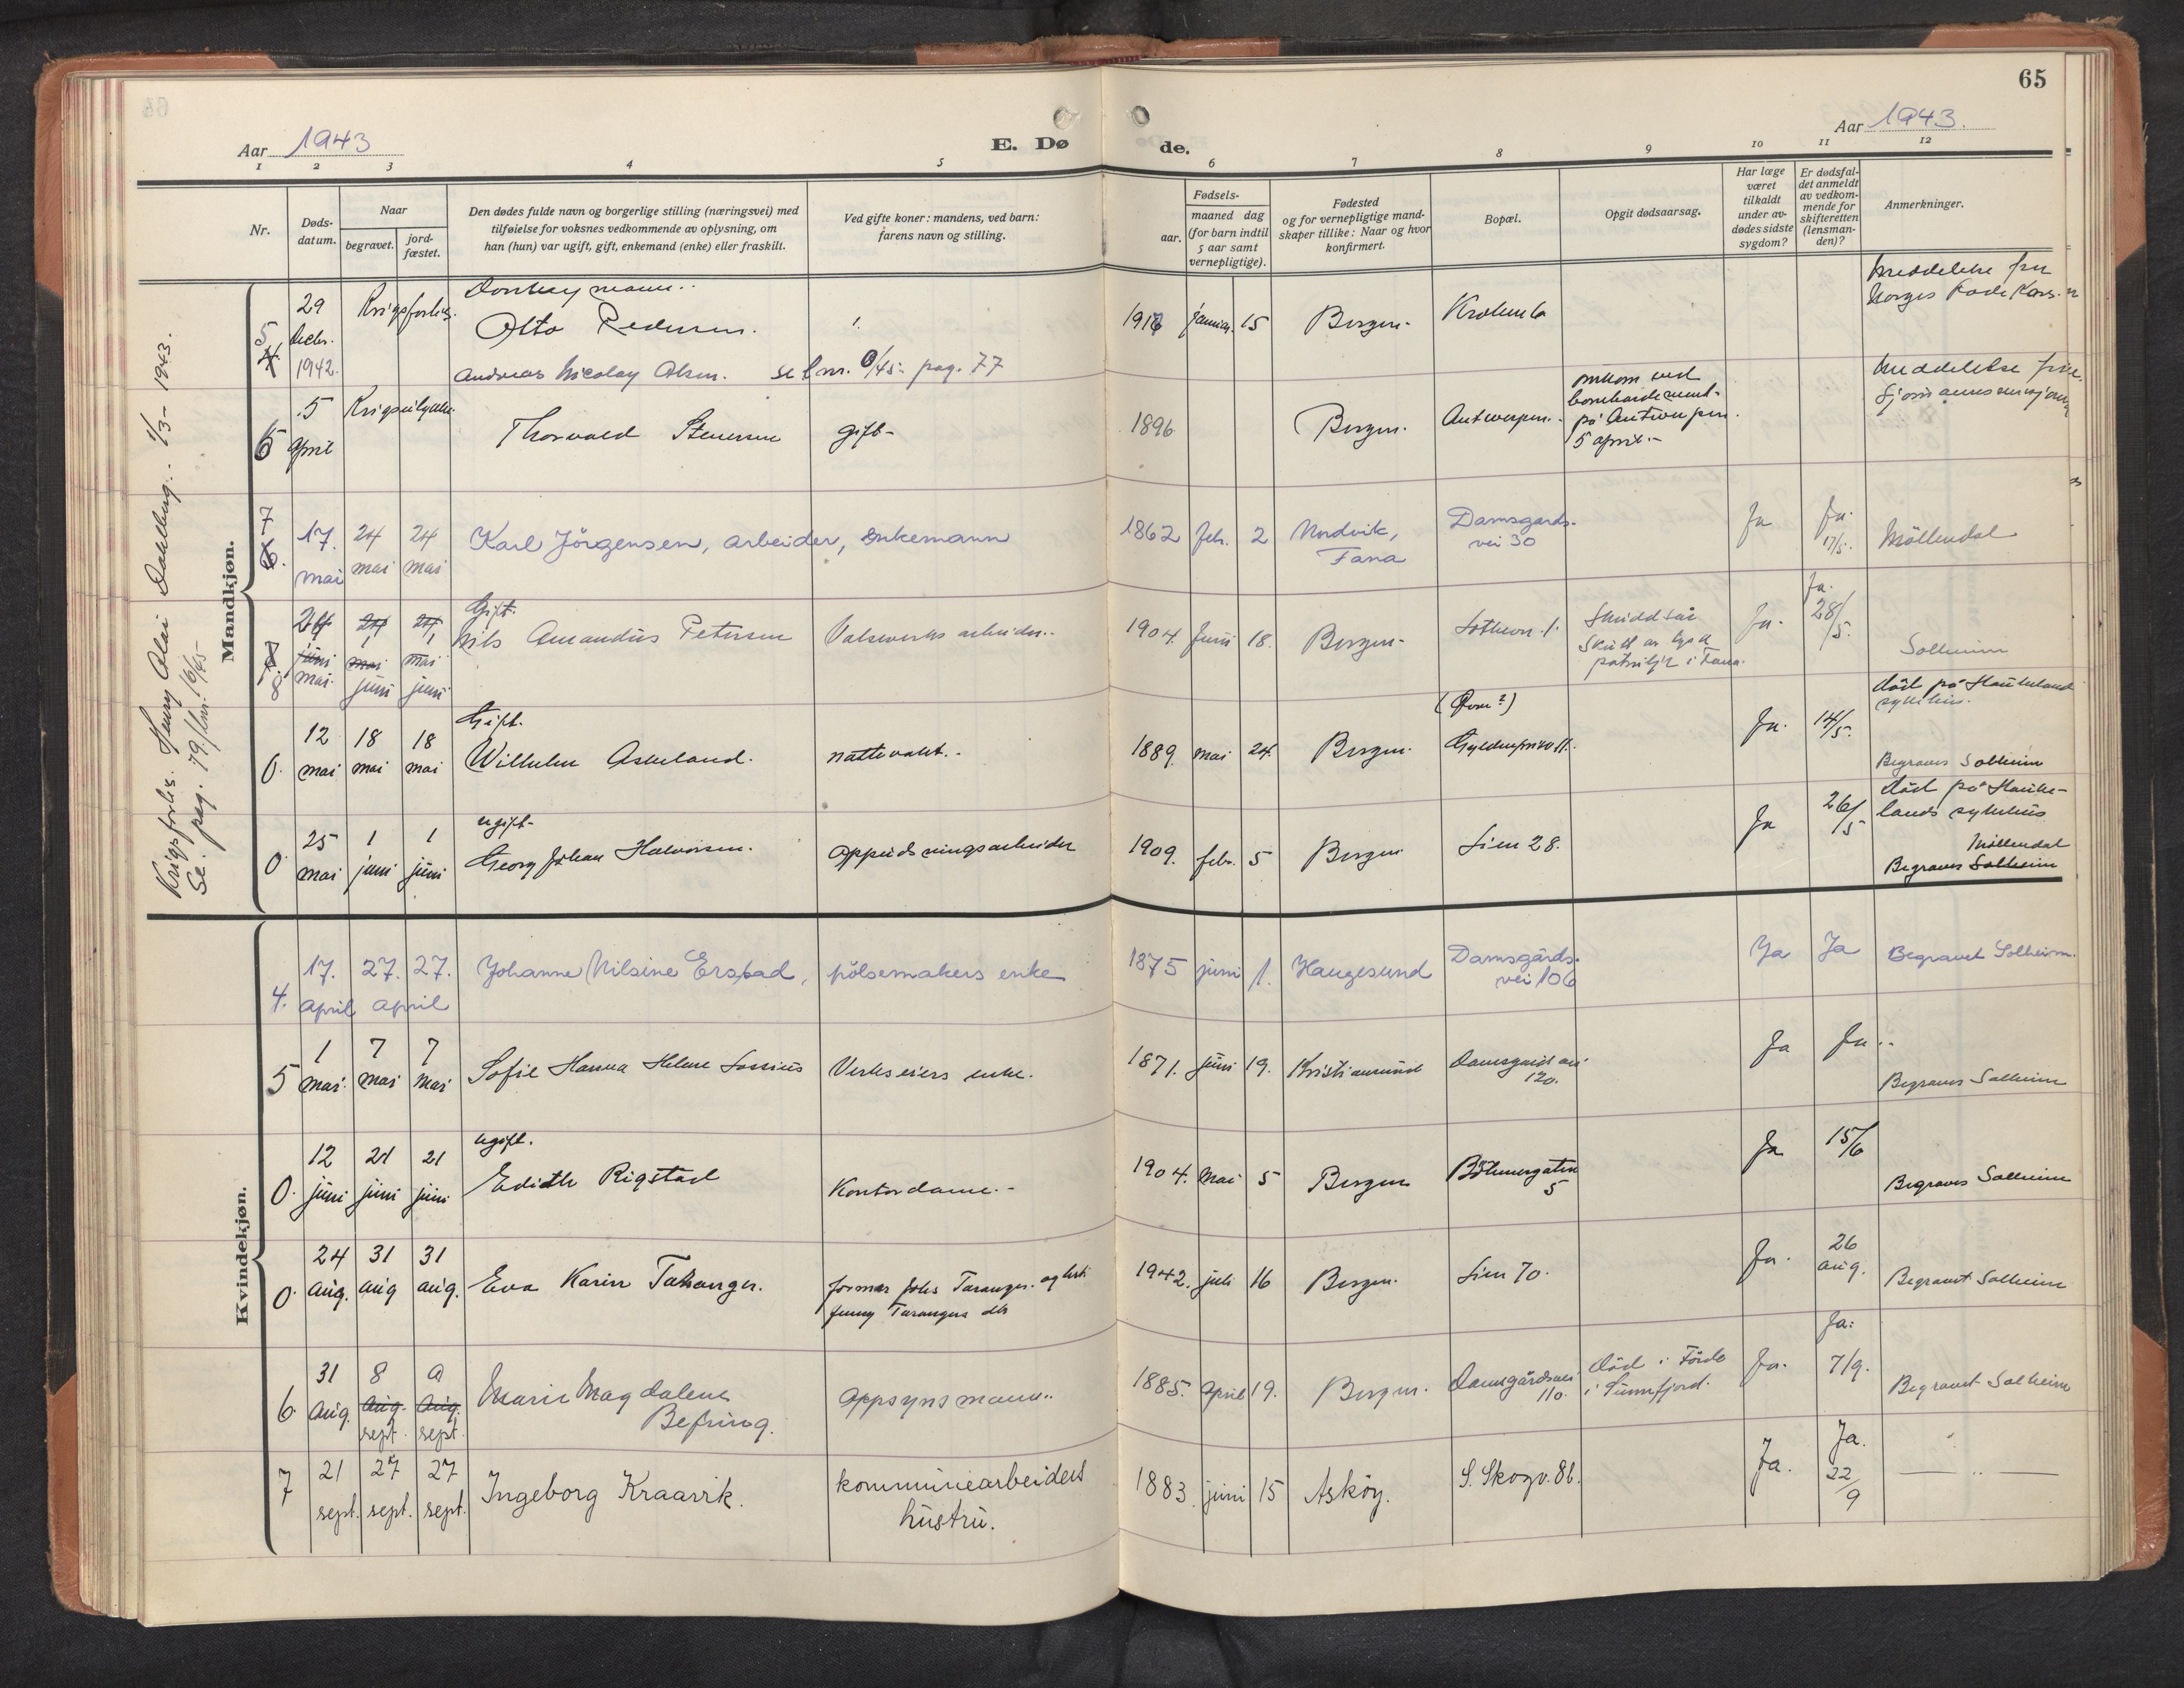 65
Aar 1943
E. Dø
de.
Aar 1943.
1 2 3 4 5 6 7 8 9 10 11 12
Nr.
Døds-
datum.
Naar
begravet.
jord-
fæstet.
Den dødes fulde navn og borgerlige stilling (næringsvei) med
tilføielse for voksnes vedkommende av oplysning, om
han (hun) var ugift, gift, enkemand (enke) eller fraskilt.
Ved gifte koner: mandens, ved barn:
farens navn og stilling.
Fødsels-
aar.
maaned dag
(for barn indtil
5 aar samt
vernepligtige).
Fødested
og for vernepligtige mand-
skaper tillike: Naar og hvor
konfirmert.
Bopæl.
Opgit dødsaarsag.
Har læge
været
tilkaldt
under av-
dødes sidste
sygdom?
Er dødsfal-
det anmeldt
av vedkom-
mende for
skifteretten
(lensman-
den)?
Anmerkninger.
Krigsforlis. Henry Olai 1/3- 1943.
Se. pag. 79. 16/45
Mandkjøn.
5 29 Decbr. 1942. Krigsforlis. Donkeymann.. Otto Pedersen. 1917 januar. 15 Bergen. Meddelelse fra
Norges
Andreas Nicolay Olsen. se l nr. 0/45- pag. 77
6 5 April Thorvald gift- 1896 Bergen. Antwerpen. omkom ved
på Antwerpen
5 april.- Meddelelse fra
7 17. mai 24 mai 24 mai Karl Jörgensen, arbeider, Enkemann 1862 feb. 2 Nordvik,
Fana Damsgårds-
vei 30 Ja Ja. 17/5. Möllendal
8 mai 1 juni 1 juni Gift. Nils Amandus Petersen Valseverks arbeider.. 1904. Juni 18. Bergen- Skuddsår
Skutt av tysk
patrulje i Fana. Ja. Ja. 28/5. Solheim
0. 12 mai 18 mai 18 mai Gift. Wilhelm Askeland. nattevakt.- 1889. mai 24. Bergen. Ja. 14/5. död på Haukeland
sykehus.
Begraves Solheim
0 25 mai 1 juni 1 juni ugift- Georg Johan Halvorsen. oppredningsarbeider 1909. feb. 5 Bergen Lien 28. Ja 26/5 död på Hauke-
lands sykehus
Möllendal
Begraves Solheim
Kvindekjøn.
4. 17. april 27. april 27. Johanne Nilsine Erstad, pölsemakers enke 1875 juni 1. Haugesund Damsgårds-
vei 106 Ja Ja Begravet Solheim.
5 1 mai. 7 mai 7 mai Sofie Hanna Helene Verkseiers enke. 1871. juni 19. Kristiansund Damsgård
120. Ja Ja.. Begraves Solheim
0. 12 juni 21 juni 21 juni ugift. Edith Rigstad Kontordame.- 1904. Mai 5 Bergen Böhmergaten
5 Ja 15/6 Begraves Solheim
0. 24 aug. 31 aug 31 aug. Eva Karin Taranger. formar Johs Taranger. og hust.
Jenny Tarangers dtr 1942. juli 16 Bergen. Lien 70. Ja. 26 aug. Begravet Solheim
6. 31 aug. 8 aug. sept. aug. sept. Marie Magdalene
Befring. oppsynsmann.. 1885. April 19. Bergen. Damsgårdsvei
110. död i Förde
i Sunnfjord. Ja. Ja: 7/9. Begravet Solheim
7 21 sept. 27 sept. 27 sept. Ingeborg Kraavik. kommunearbeiders
hustru. 1883. juni 15 Asköy. S. Skogv. 8b. Ja. Ja. 22/9 — „ —